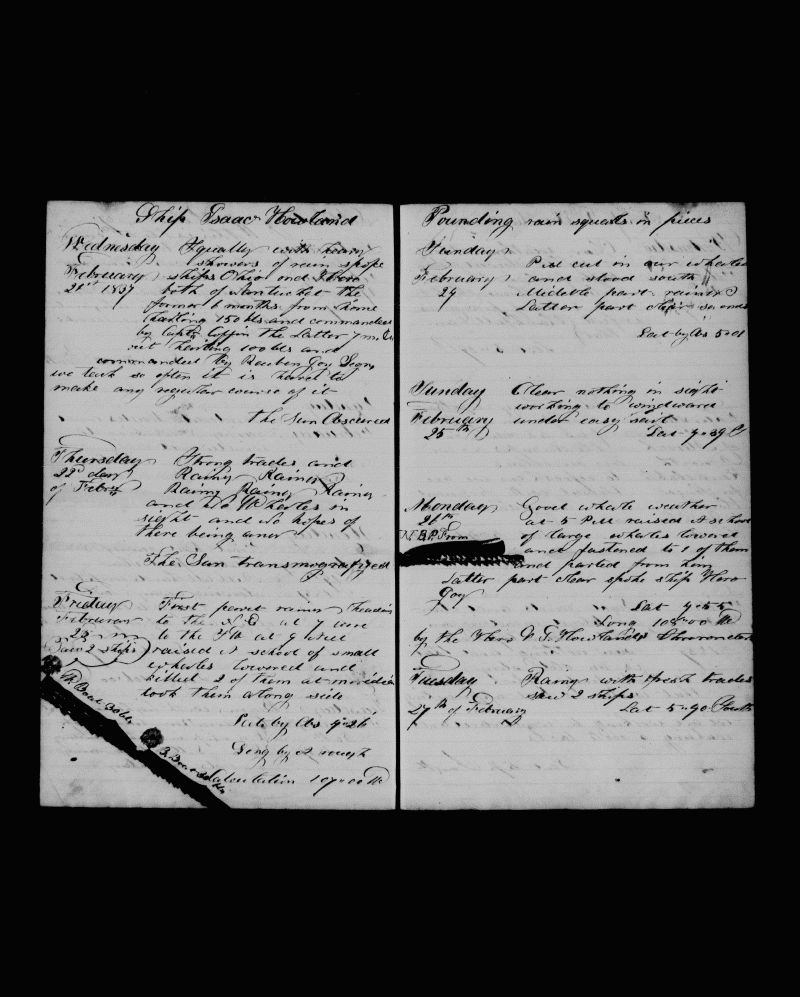 Ship Isaac Howland
Wednesday Squally with heavy
showers of rain spoke
February ships Ohio and
21st 1837 both of Nantucket the
former 6 months from home
having 150 bls and commanded
by Capt Coffin the Latter 7 m
out having 100 bls and
commanded by Reuben Joy
we tack so often it is hard to
make any regular course of it
the Sun Obscured
Thursday Strong trades and
22d day Rainy Rainy
of Febry Rainy Rainy Rainy
and No Wheles in
sight and No hopes of
there being any
The Sun transmogrified
Friday First part rainy heading
February to the at 7
23 to the at 9
Saw 2 ships raised A school of small
whales lowered and
killed 2 of them at meridian
took them along side
W Boat 20 bls
Lat by Obs 9=26
Long by D rough
B Boat
Calculation 107=00 W
Pounding rain squals in pieces
Sunday
P.M. cut in our whales
February and stood south
24 Middle part rainy
Latter part
Lat by Obs 5=01
Sunday Clear nothing in sight
working to windward
February under easy sail
25th Lat
Monday Good whale weather
26th at 5 P.M raised A school
N.B.P. From of large whales lowered
and fastened to 1 of them
and parted from him
Latter part clear spoke ship Hero
Joy
Lat 4=55
Long 108=00 W
by the Hero Chronometer
Tuesday Rainy with fresh trades
saw 2 ships
27th of February Lat South